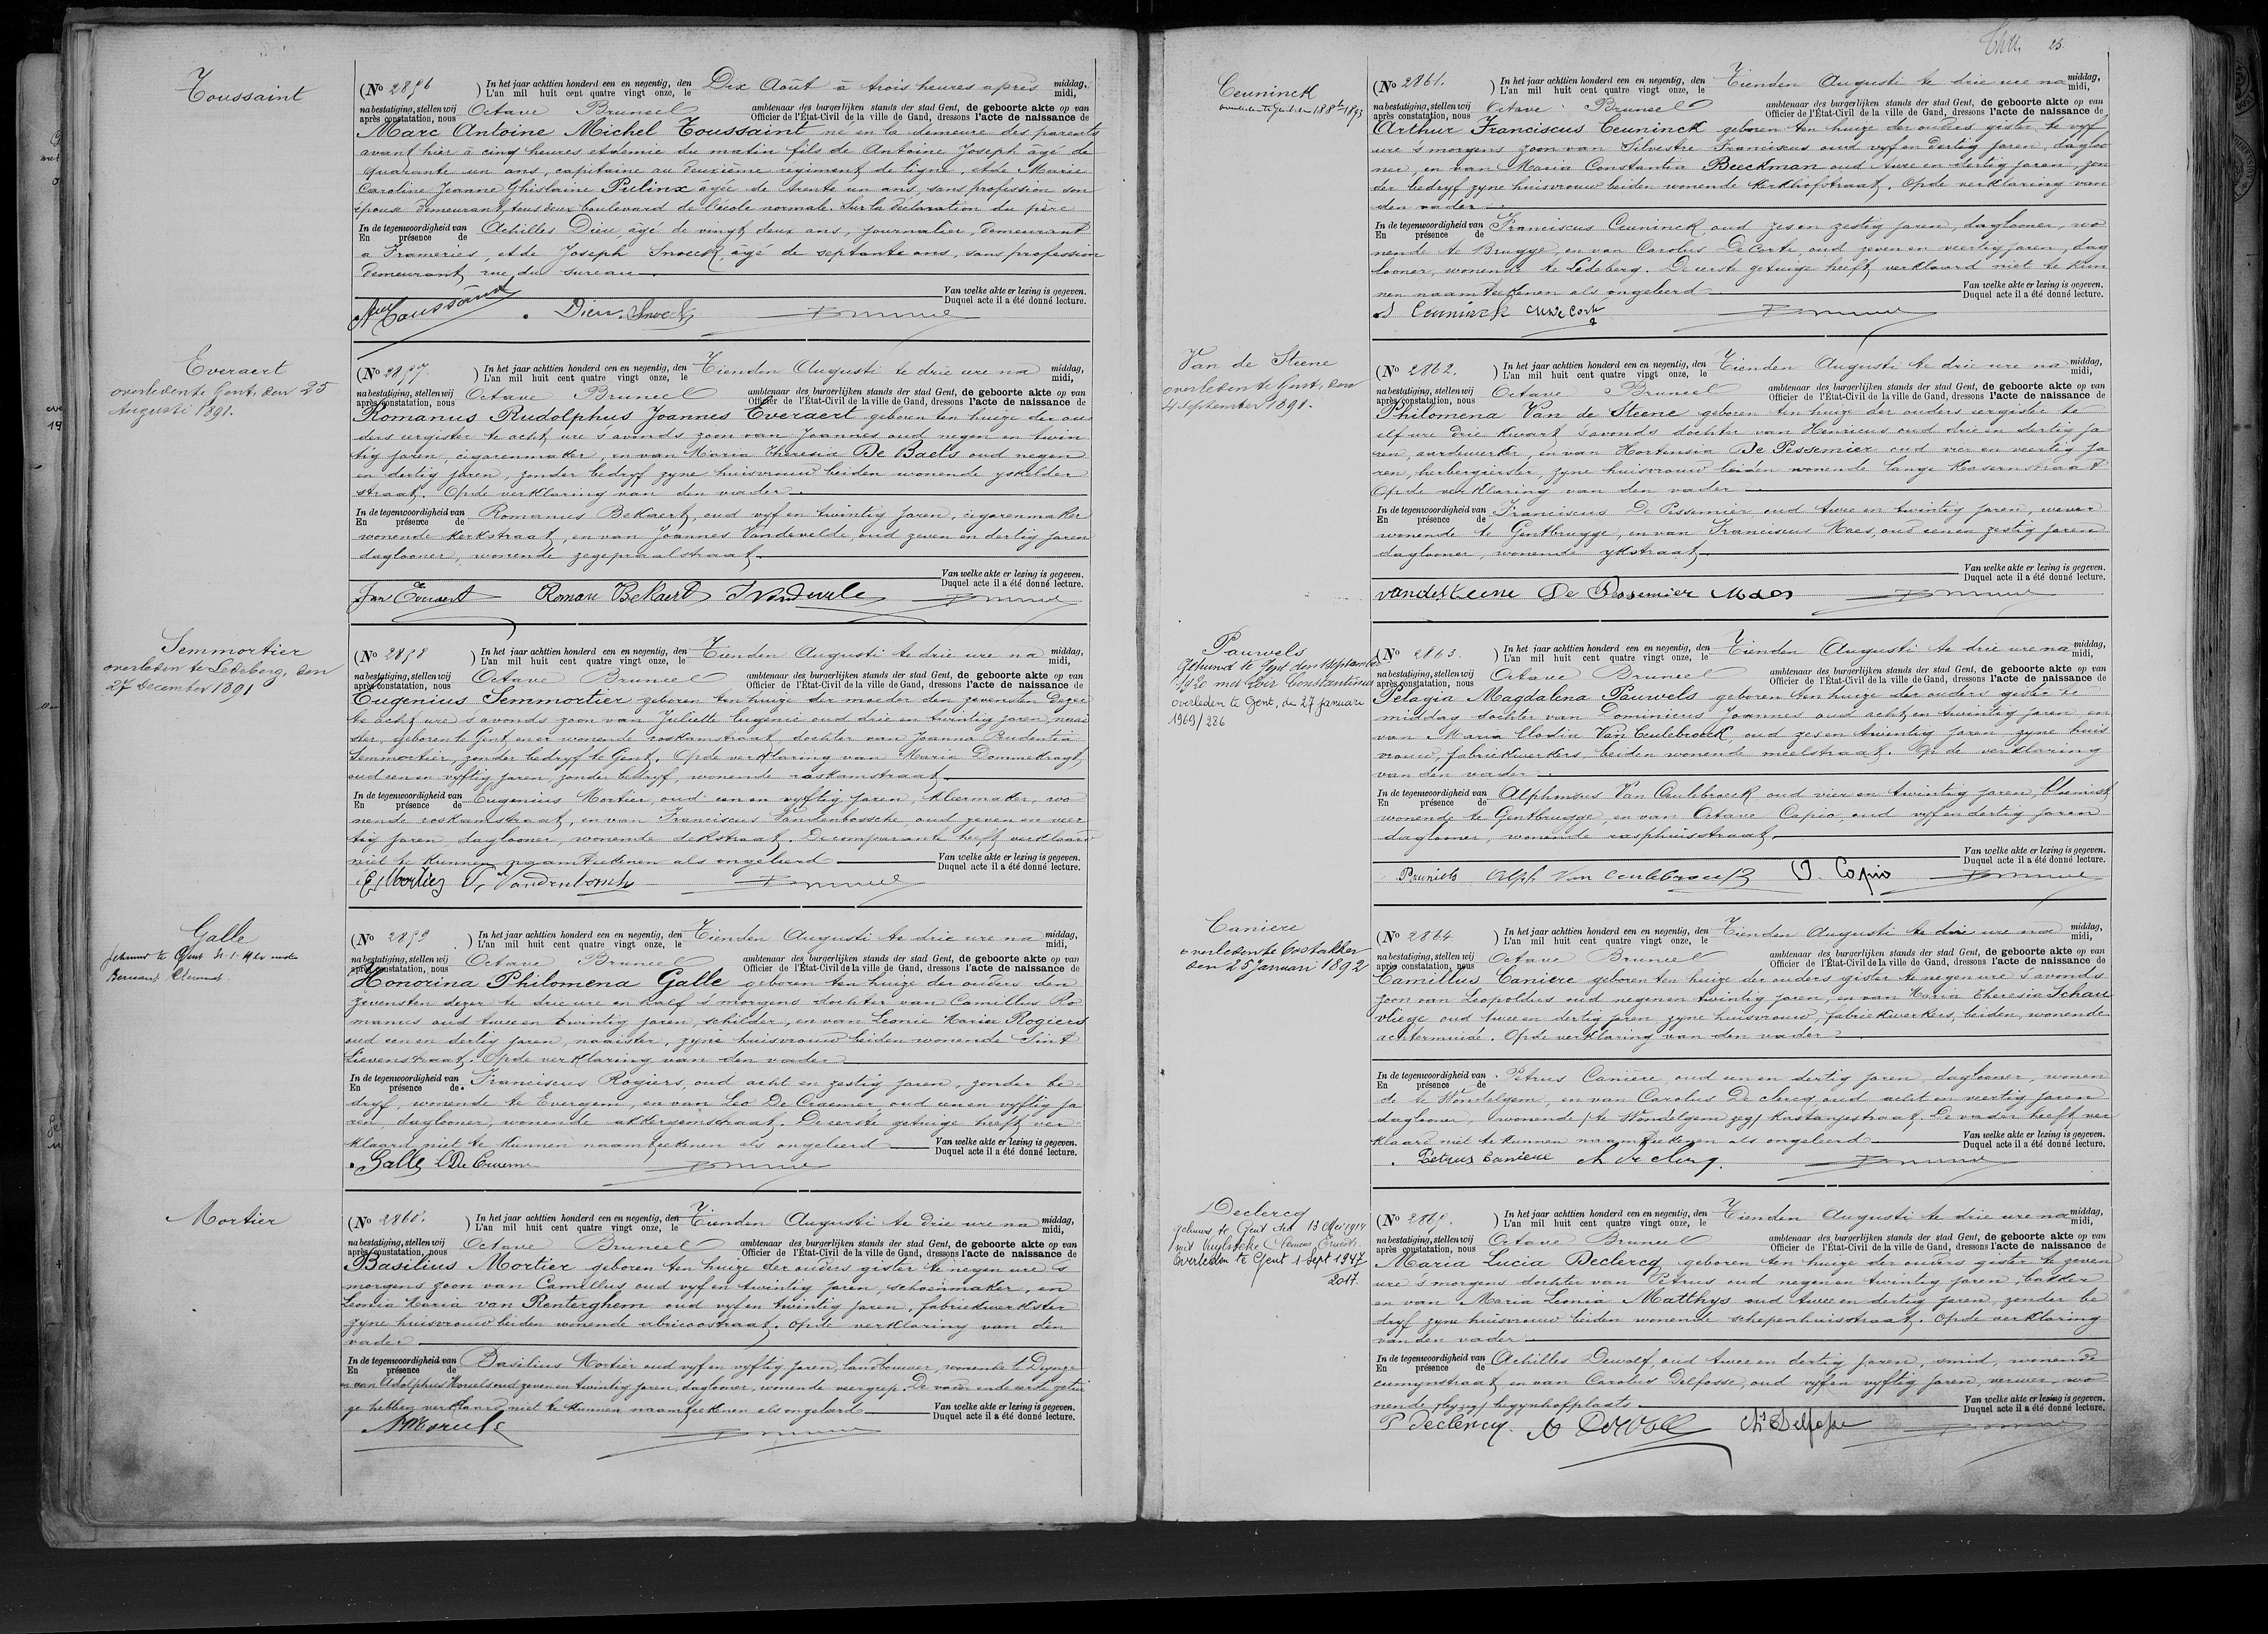 Toussaint
(No 2856 ) In het jaar achttien honderd een en negentig, den
L'an mil huit cent quatre vingt onze, le Dix Août à trois heures après middag,
midi,
na bestatiging, stellen wij
après constatation, nous Octave Bruneel ambtenaar des burgerlijken stands der stad Gent, de geboorte akte op van
Officier de l'État-Civil de la ville de Gand, dressons l'acte de naissance de
Marc Antoine Michel Toussaint né en la demeure des parents
avant hier à cinq heures et demie du matin fils de Antoine Joseph âgé de
quarante un ans, capitaine au deuxième régiment de ligne, et de Marie
Caroline Jeanne Ghislaine Pulinx âgée de trente un ans, sans profession son
épouse demeurant tous deux boulevard de l'école normale. Sur la déclaration du père
In de tegenwoordigheid van
En présence de Achilles Dieu, âgé de vingt deux ans, journalier, demeurant
à Frameries, et de Joseph Snoeck, âgé de septante ans, sans profession
demeurant rue du sureau
Van welke akte er lezing is gegeven.
Duquel acte il a été donné lecture.
Toussaint Dieu Snoeck
Everaert
overleden te Gent, den 25
Augusti 1891.
(No 2857 ) In het jaar achttien honderd een en negentig, den
L'an mil huit cent quatre vingt onze, le Tienden Augusti te drie ure na middag,
midi,
na bestatiging, stellen wij
après constatation, nous Octave Bruneel ambtenaar des burgerlijken stands der stad Gent, de geboorte akte op van
Officier de l'État-Civil de la ville de Gand, dressons l'acte de naissance de
Romanus Rudolphus Joannes Everaert geboren ten huize der ou
ders eergister te acht ure s'avonds zoon van Joannes oud negen en twin
tig jaren, cigarenmaker, en van Maria Theresia De Baets oud negen
en dertig jaren, zonder bedryf zyne huisvrouw beiden wonende yskelder
straat. Op de verklaring van den vader
In de tegenwoordigheid van
En présence de Romanus Bekaert, oud vyf en twintig jaren, cigarenmaker
wonende kerkstraat, en van Joannes Vandevelde oud zeven en dertig jaren
daglooner, wonende zegepraalstraat.
Van welke akte er lezing is gegeven.
Duquel acte il a été donné lecture.
Jan Everaert Roman Bekaert
Semmortier
overleden te Ledeberg, den
27 December 1891
(No 2858 ) In het jaar achttien honderd een en negentig, den
L'an mil huit cent quatre vingt onze, le Tienden Augusti te drie ure na middag,
midi,
na bestatiging, stellen wij
après constatation, nous Octave Bruneel ambtenaar des burgerlijken stands der stad Gent, de geboorte akte op van
Officier de l'État-Civil de la ville de Gand, dressons l'acte de naissance de
Eugenius Semmortier geboren ten huize der moeder den zevensten dezer
te acht ure s'avonds zoon van Juliette Eugenie oud drie en twintig jaren, naai
ster, geboren te Gent, en er wonende roskamstraat, dochter van Joanna Prudentia
Semmortier, zonder bedryf te Gent. Op de verklaring van Maria Dommekragt
oud een en vyftig jaren, zonder bedryf, wonende roskamstraat.
In de tegenwoordigheid van
En présence de Eugenius Mortier, oud een en vyftig jaren, kleermaker, wo
nende roskamstraat, en van Franciscus Vandenbossche oud zeven en veer
tig jaren daglooner, wonende dekstraat. De comparante heeft verklaard
niet te kunnen naamteekenen als ongeleerd
Van welke akte er lezing is gegeven.
Duquel acte il a été donné lecture.
E. Mortier
Galle
Bernard Clement
(No 2859 ) In het jaar achttien honderd een en negentig, den
L'an mil huit cent quatre vingt onze, le Tienden Augusti te drie ure na middag,
midi,
na bestatiging, stellen wij
après constatation, nous Octave Bruneel ambtenaar des burgerlijken stands der stad Gent, de geboorte akte op van
Officier de l'État-Civil de la ville de Gand, dressons l'acte de naissance de
Honorina Philomena Galle geboren ten huize der ouders den
zevensten dezer te drie ure en half s'morgens dochter van Camillus Ro
manus oud twee en twintig jaren, schilder, en van Leonie Maria Rogiers
oud een en dertig jaren, naaister, zyne huisvrouw beiden wonende Sint
Lievenstraat. Op de verklaring van den vader
In de tegenwoordigheid van
En présence de Franciscus Rogiers, oud acht en zestig jaren, zonder be-
dryf, wonende te Evergem, en van Leo De Craemer oud een en vyftig ja
ren, daglooner, wonende akkergemstraat. De eerste getuige heeft ver-
klaard niet te kunnen naamteekenen als ongeleerd
Van welke akte er lezing is gegeven.
Duquel acte il a été donné lecture.
Galle
Mortier
(No 2860. ) In het jaar achttien honderd een en negentig, den
L'an mil huit cent quatre vingt onze, le Tienden Augusti te drie ure na middag,
midi,
na bestatiging, stellen wij
après constatation, nous Octave Bruneel ambtenaar des burgerlijken stands der stad Gent, de geboorte akte op van
Officier de l'État-Civil de la ville de Gand, dressons l'acte de naissance de
Basilius Mortier geboren ten huize der ouders gister te negen ure s
morgens zoon van Camillus, oud vyf en twintig jaren, schoenmaker, en
Leonia Maria van Renterghem oud vyf en twintig jaren, fabriekwerkster
zyne huisvrouw beiden wonende abricoostraat. Op de verklaring van den
vader
In de tegenwoordigheid van
En présence de Basilius Mortier oud vyf en vyftig jaren, landbouwer, wonende te Deynze
en van Adolphus Morels oud zeven en twintig jaren, daglooner, wonende veergrep. De vader en de eerste getui
ge hebben verklaard niet te kunnen naamteekenen als ongeleerd
Van welke akte er lezing is gegeven.
Duquel acte il a été donné lecture.
25.
Ceuninck
(No 2861. ) In het jaar achttien honderd een en negentig, den
L'an mil huit cent quatre vingt onze, le Tienden Augusti te drie ure na middag,
midi,
na bestatiging, stellen wij
après constatation, nous Octave Bruneel ambtenaar des burgerlijken stands der stad Gent, de geboorte akte op van
Officier de l'État-Civil de la ville de Gand, dressons l'acte de naissance de
Arthur Franciscus Ceuninck geboren ten huize der ouders gister te vyf
ure s'morgens zoon van Silvestre Franciscus oud vyf en dertig jaren, dagloo
ner, en van Maria Constantia Beeckman oud twee en dertig jaren, zon
der bedryf zyne huisvrouw beiden wonende Kerkhofstraat. Op de verklaring van
den vader
In de tegenwoordigheid van
En présence de Franciscus Ceuninck, oud zes en zestig jaren, daglooner, wo
nende te Brugge, en van Carolus DeCorte, oud zeven en veertig jaren, dag
looner, wonende te Ledeberg. De eerste getuige heeft verklaard niet te kun
nen naamteekenen als ongeleerd
Van welke akte er lezing is gegeven.
Duquel acte il a été donné lecture.
S Ceuninck
Van de Steene
overleden te Gent, den
4 September 1891.
(No 2862. ) In het jaar achttien honderd een en negentig, den
L'an mil huit cent quatre vingt onze, le Tienden Augusti te drie ure na middag,
midi,
na bestatiging, stellen wij
après constatation, nous Octave Bruneel ambtenaar des burgerlijken stands der stad Gent, de geboorte akte op van
Officier de l'État-Civil de la ville de Gand, dressons l'acte de naissance de
Philomena Van de Steene geboren ten huize der ouders eergister te
elf ure drie kwart s'avonds dochter van Henricus oud drie en dertig ja
ren, aardewerker, en van Hortensia De Pessemier oud vier en veertig ja
ren, herbergierster, zyne huisvrouw beiden wonende lange Kasernstraat
Op de verklaring van den vader
In de tegenwoordigheid van
En présence de Franciscus De Pessemier oud twee en twintig jaren, wever
wonende te Gentbrugge, en van Franciscus Maes, oud een en zestig jaren
daglooner, wonende ykstraat
Van welke akte er lezing is gegeven.
Duquel acte il a été donné lecture.
vandeSteene De Pessemier Maes
Pauwels
Gehuwd te Gent den September
1920 met Constantinus
overleden te Gent, de 27 januari
1969/286
(No 2863. ) In het jaar achttien honderd een en negentig, den
L'an mil huit cent quatre vingt onze, le Tienden Augusti te drie ure na middag,
midi,
na bestatiging, stellen wij
après constatation, nous Octave Bruneel ambtenaar des burgerlijken stands der stad Gent, de geboorte akte op van
Officier de l'État-Civil de la ville de Gand, dressons l'acte de naissance de
Pelagia Magdalena Pauwels geboren ten huize der ouders gister te
middag dochter van Dominicus Joannes oud acht en twintig jaren en
van Maria Clodia Van Ceulebroeck, oud zes en twintig jaren zyne huis
vrouw, fabriekwerkers, beiden wonende meelstraat. Op de verklaring
van den vader
In de tegenwoordigheid van
En présence de Alphonsus Van Ceulebroeck oud vier en twintig jaren, bloemist
wonende te Gentbrugge, en van Octave Capio, oud vyf en dertig jaren
daglooner, wonende rasphuisstraat
Van welke akte er lezing is gegeven.
Duquel acte il a été donné lecture.
Alph. Van Ceulebroeck O. Capio
Caniere
overleden te Oostakker
den 25 Januari 1892
(No 2864 ) In het jaar achttien honderd een en negentig, den
L'an mil huit cent quatre vingt onze, le Tienden Augusti te drie ure na middag,
midi,
na bestatiging, stellen wij
après constatation, nous Octave Bruneel ambtenaar des burgerlijken stands der stad Gent, de geboorte akte op van
Officier de l'État-Civil de la ville de Gand, dressons l'acte de naissance de
Camillus Caniere geboren ten huize der ouders gister te negen ure s'avonds
zoon van Leopoldus oud negen en twintig jaren, en van Maria Theresia Schau
vliege oud twee en dertig jaren zyne huisvrouw, fabriekwerkers, beiden, wonende
achtermuide. Op de verklaring van den vader
In de tegenwoordigheid van
En présence de Petrus Caniere, oud een en dertig jaren, daglooner, wonen
de te Wondelgem, en van Carolus De clercq oud acht en veertig jaren
daglooner, wonende /te Wondelgem zeg/ Kastanjestraat. De vader heeft ver
klaard niet te kunnen naamteekenen als ongeleerd
Van welke akte er lezing is gegeven.
Duquel acte il a été donné lecture.
Petrus Caniere
Declercq
gehuwd te Gent den 13 Mei 1914
met Vuylsteke
Overleden te Gent 1 Sept 1947
2017.
(No 2865. ) In het jaar achttien honderd een en negentig, den
L'an mil huit cent quatre vingt onze, le Tienden Augusti te drie ure na middag,
midi,
na bestatiging, stellen wij
après constatation, nous Octave Bruneel ambtenaar des burgerlijken stands der stad Gent, de geboorte akte op van
Officier de l'État-Civil de la ville de Gand, dressons l'acte de naissance de
Maria Lucia Declercq geboren ten huize der ouders gister te zeven
ure s'morgens dochter van Petrus oud negen en twintig jaren, bakker
en van Maria Leonia Matthys oud twee en dertig jaren, zonder be
dryf zyne huisvrouw beiden wonende schepenhuisstraat. Op de verklaring
van den vader
In de tegenwoordigheid van
En présence de Achilles Dewolf, oud twee en dertig jaren, smid, wonende
cumynstraat, en van Carolus Delfosse, oud vyf en vyftig jaren, verwer, wo
nende begynhofplaats
Van welke akte er lezing is gegeven.
Duquel acte il a été donné lecture.
P Declercq Delfosse